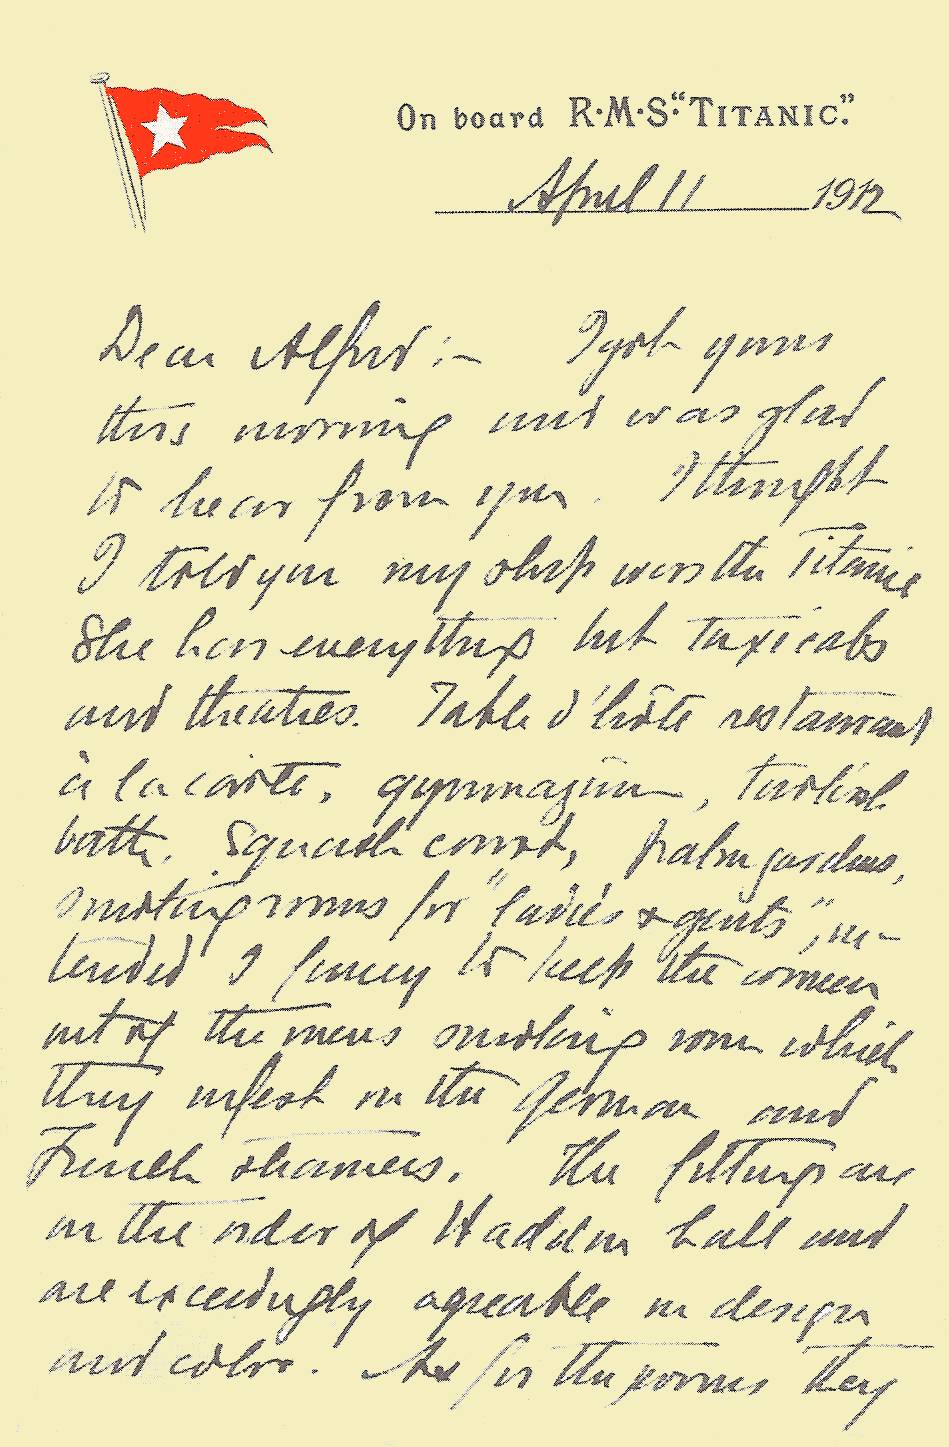 On board R·M·S· "TITANIC".
April 11 1912
Dear Alfred :— I got yours
this morning and was glad
to hear from you. I thought
I told you my ship was the Titanic
She has everything but taxicabs
and theatres. Table d'hôte restaurant
à la carte, gymnazium, turkish
bath, Squash court, palm gardens,
smoking rooms for "ladies & gents", in-
tended I fancy to keep the women
out of the mens smoking room which
they infest on the German and
French steamers. The fittings are
on the order of Haddon hall and
are exceedingly agreable in design
and color. As for the rooms they